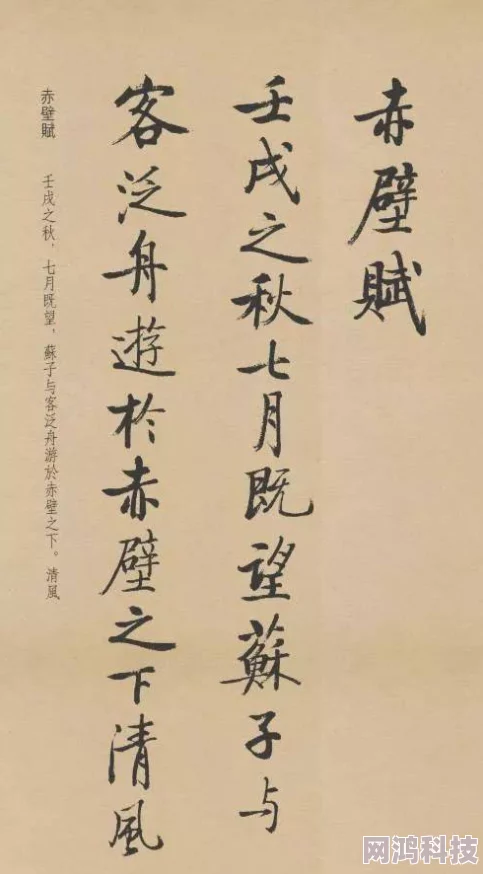 赤壁賦
壬戌之秋七月既望蘇子与
客泛舟遊於赤壁之下清風
赤壁賦　壬戌之秋，七月既望，蘇子与客泛舟游於赤壁之下。清風
网鸿科技